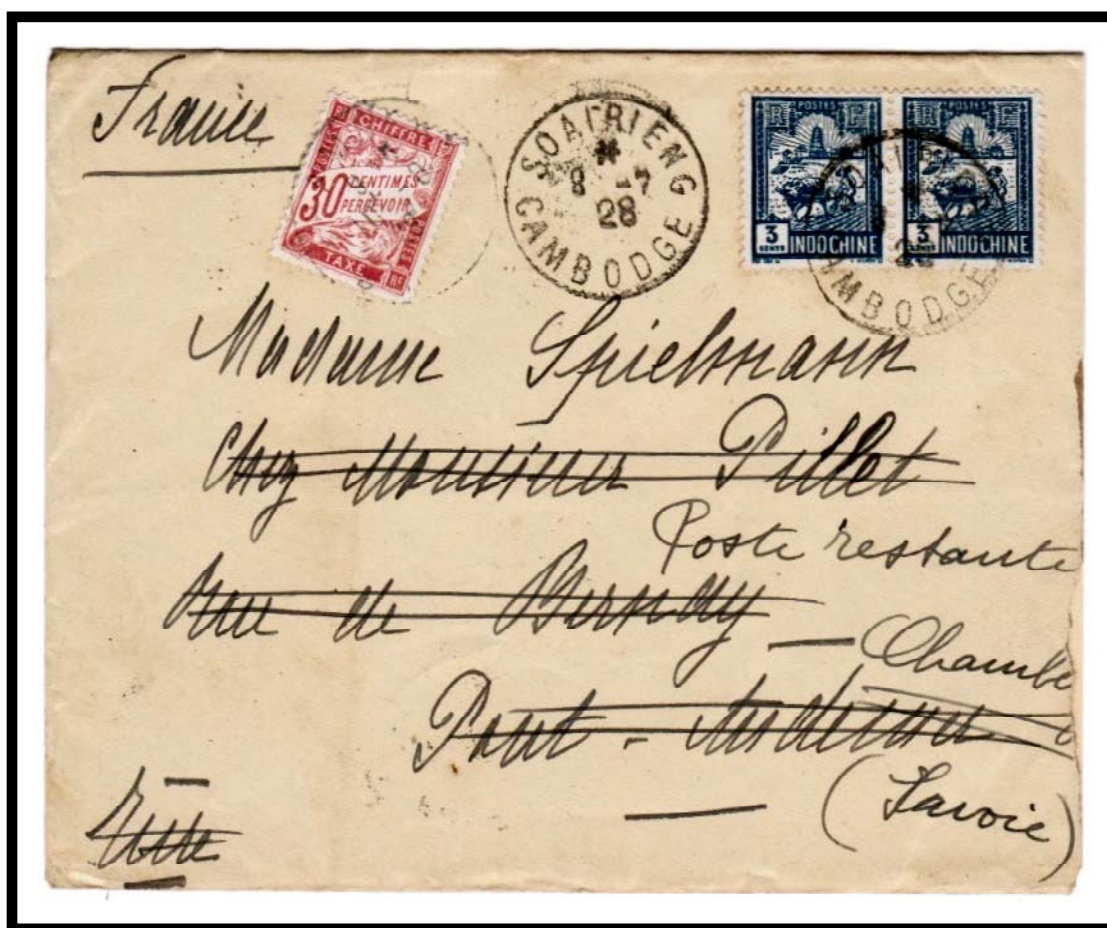 France
CHIFFRE
POSTES
30 CENTIMES
PERCEVOIR
TAXE
RF
SOAIRIENG
8 -7
28
CAMBODGE
POSTES
R F
3
CENTS
INDOCHINE
POSTES
R F
3
CENTS
INDOCHINE
CAMBODGE
Madame Spielmann
Chez Monsieur Pillet
Poste restante
Rue de Bernay
Chambé
Pont-Audemer
(Savoie)
Eure